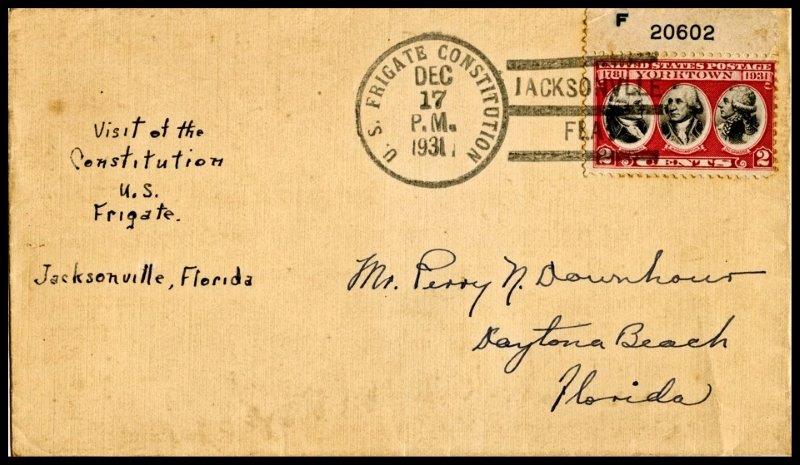 F 20602
UNITED STATES POSTAGE
1781 YORKTOWN 1931
2 CENTS 2
U.S. FRIGATE CONSTITUTION
DEC
17
P.M.
1931
JACKSONVILLE
FLA
Visit of the
Constitution
U.S.
Frigate.
Jacksonville, Florida
Mr. Perry N. Downhour
Daytona Beach
Florida